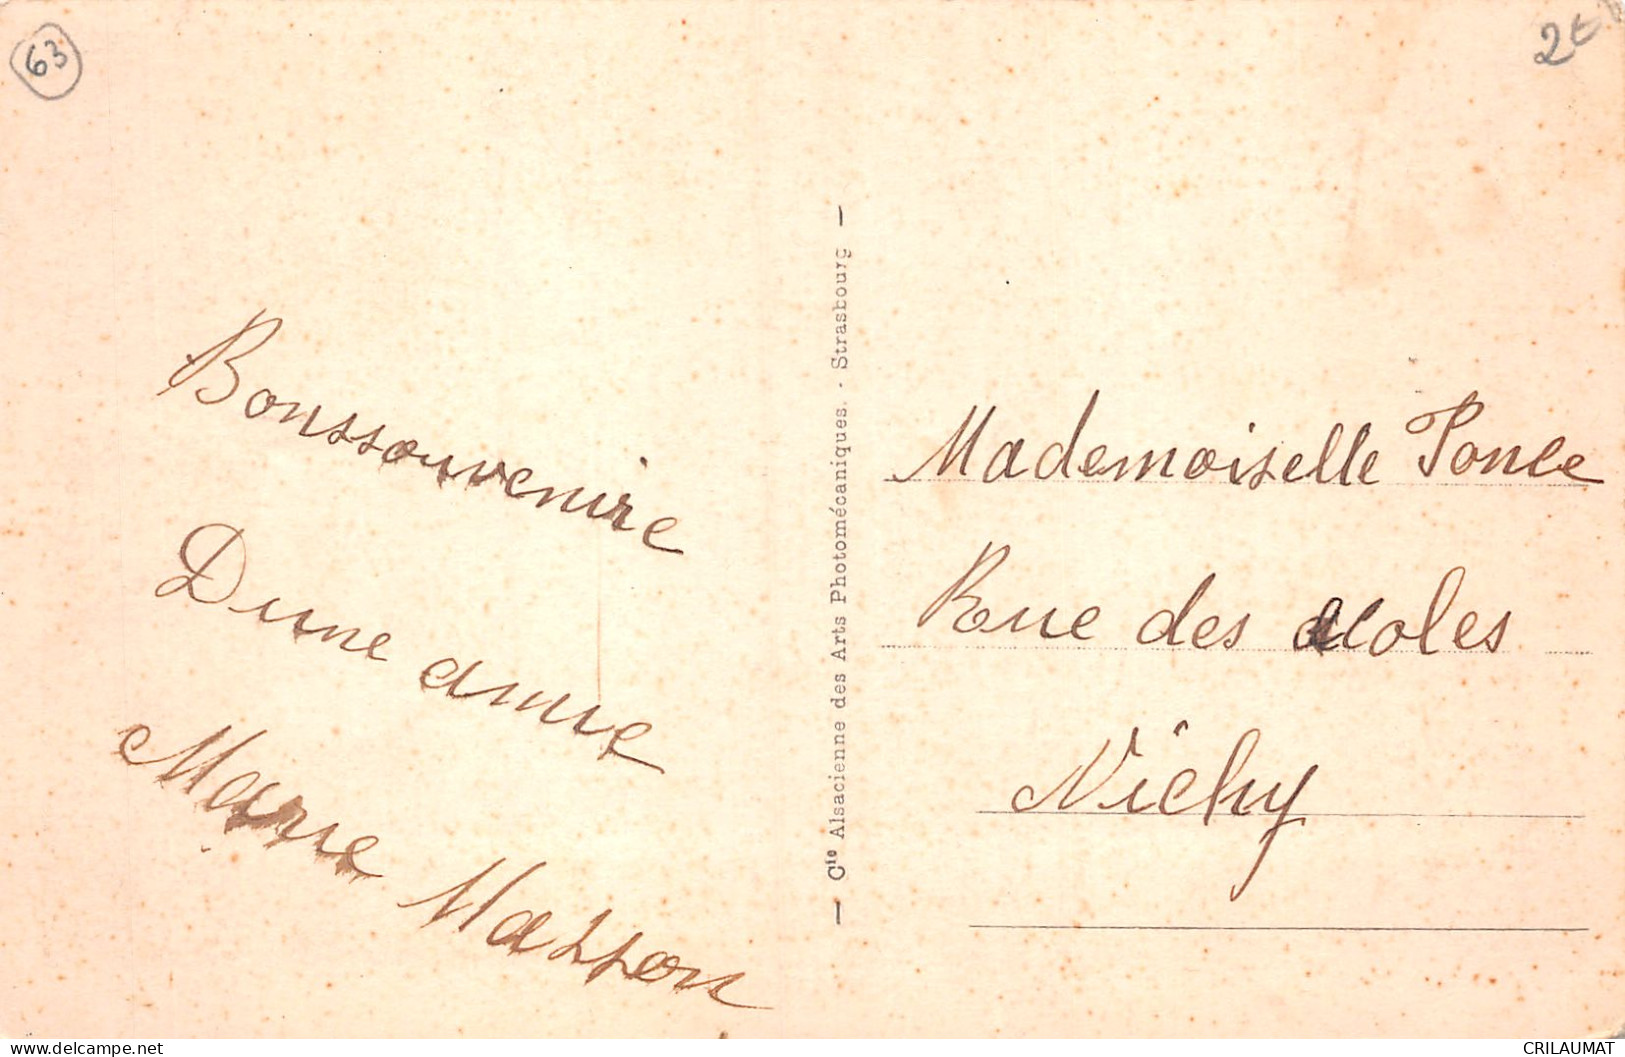 63
2€
Bonssouvenire
Dune amie
Marie Masson
— Cie Alsacienne des Arts Photomécaniques. - Strasbourg —
Mademoiselle Ponce
Rue des ecoles
Vichy
www.delcampe.net
CRILAUMAT